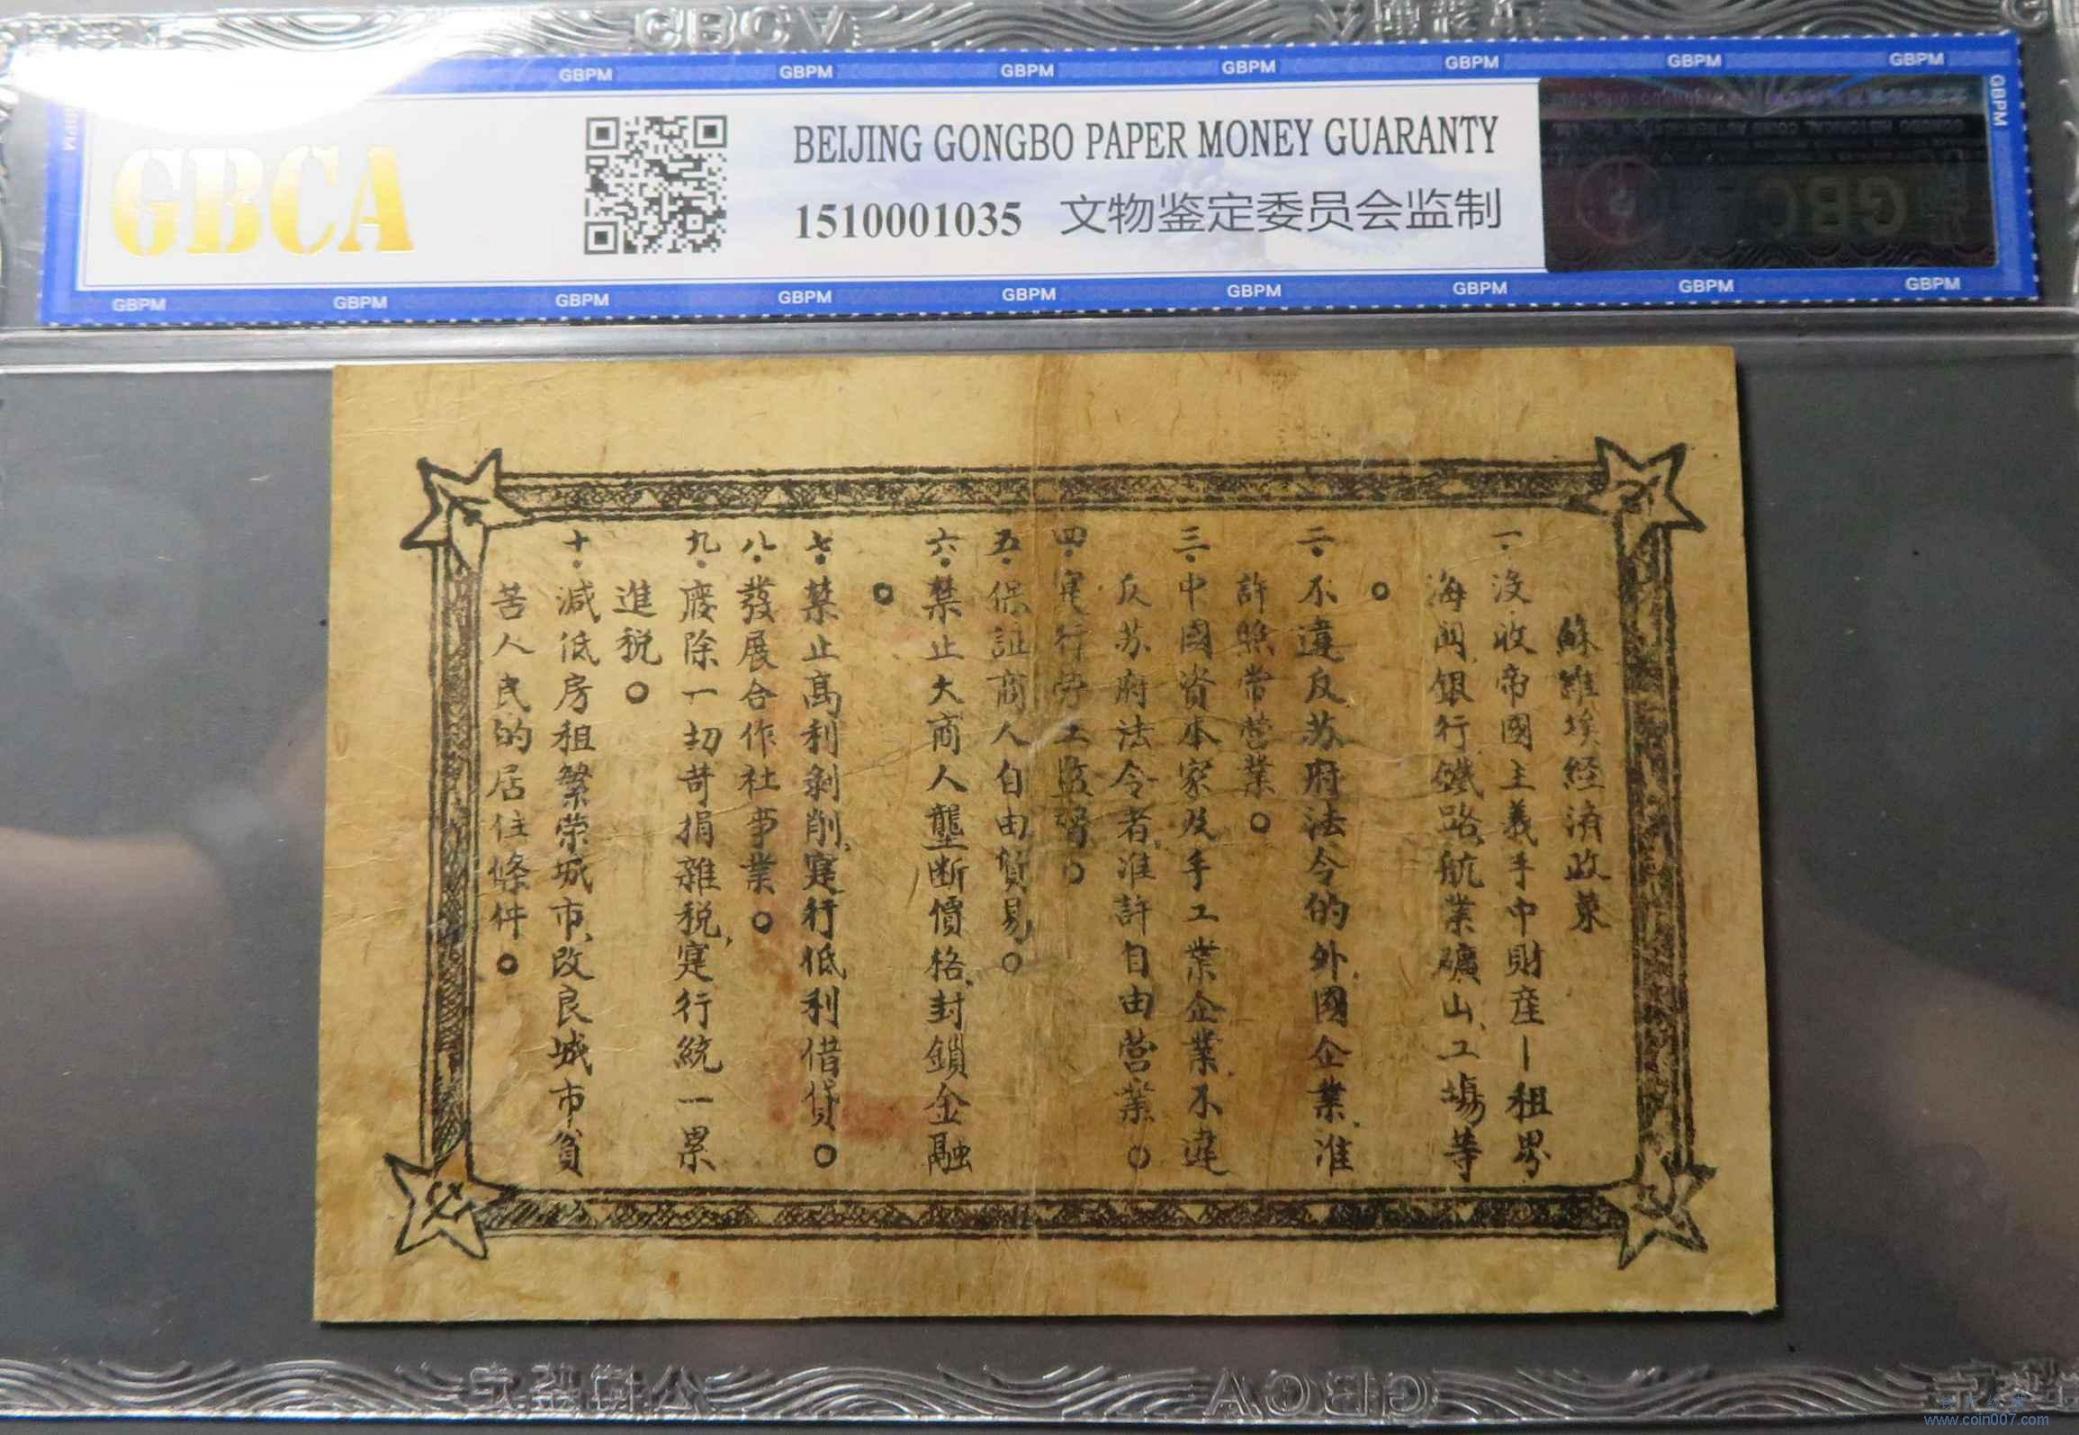 GBCA
GBPM GBPM GBPM GBPM GBPM GBPM GBPM
GBPM
GBCA
BEIJING GONGBO PAPER MONEY GUARANTY
1510001035 文物鉴定委员会监制
GBPM GBPM GBPM GBPM GBPM GBPM GBPM GBPM GBPM
蘇維埃経済政策
一·没收帝國主義手中財産—租界
海関銀行、鐵路、航業、礦山、工場等
。
二·不違反苏府法令的外國企業、准
許照常營業。
三·中國資本家及手工業企業、不違
反苏府法令者、准許自由營業。
四·寔行劳工监督。
五·保証商人自由貿易、。
六·禁止大商人壟断價格、封鎖金融
。
七·禁止髙利剝削、寔行低利借貸。
八·發展合作社事業。
九·廢除一切苛捐雜税、寔行統一累
進税。
十·減低房租繁荣城市、改良城市貧
苦人民的居住條件。
GBCA
www.coin007.com